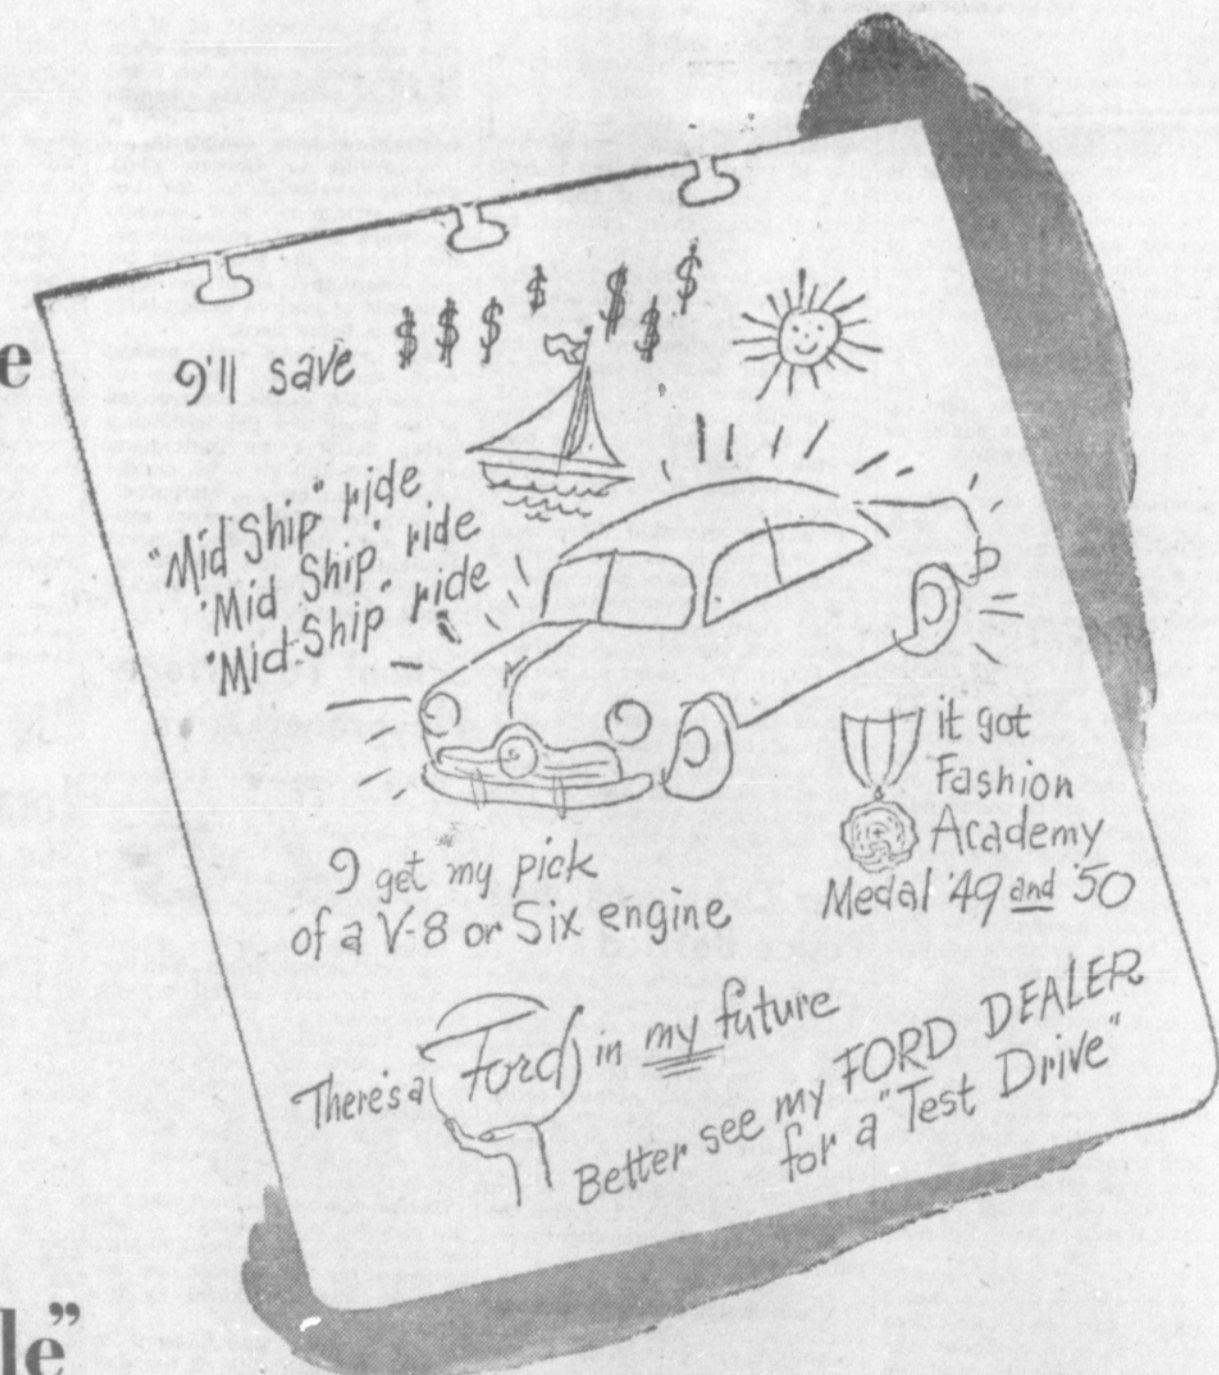 e
I'll save $ $ $ $ $ $ $
"Mid Ship" ride
"Mid Ship" ride
"Mid-Ship" ride
it got
Fashion
Academy
Medal '49 and '50
I get my pick
of a V-8 or Six engine
There's a Ford in my future
Better see my FORD DEALER
for a "Test Drive"
le"